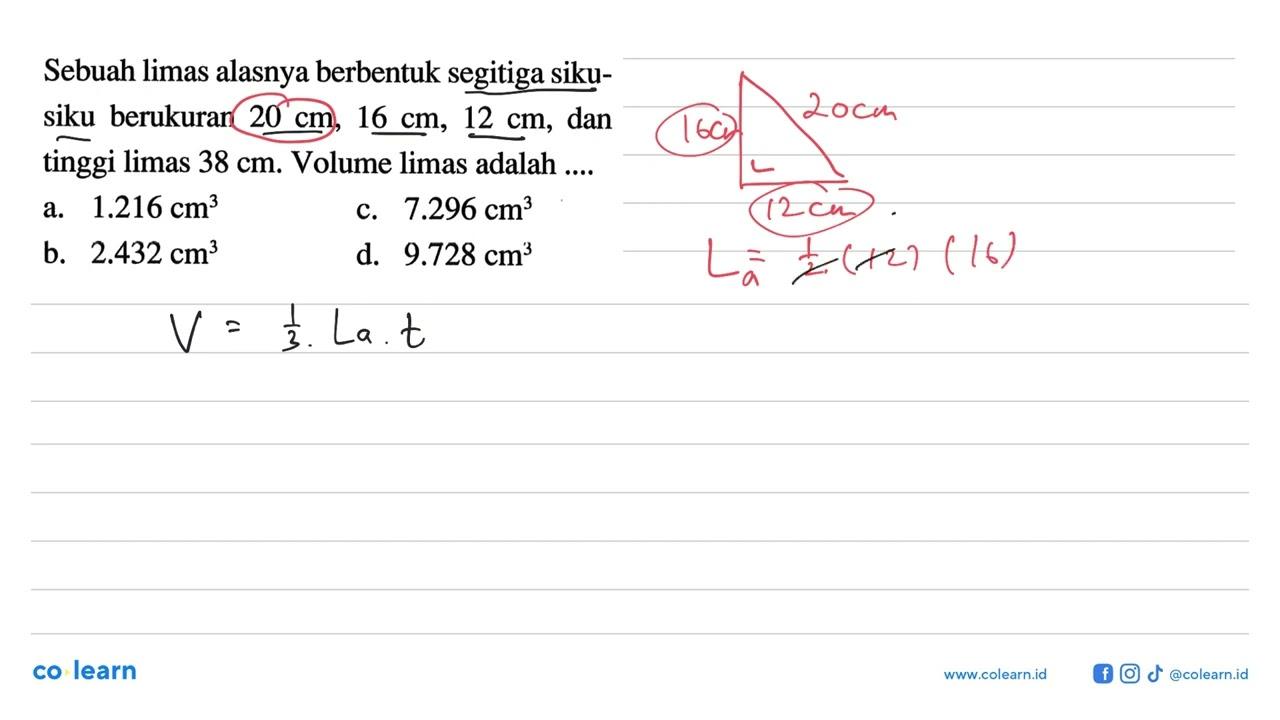 Sebuah limas alasnya berbentuk segitiga siku-
siku berukuran 20 cm, 16 cm, 12 cm, dan
tinggi limas 38 cm. Volume limas adalah ....
a. 1.216 cm³ c. 7.296 cm³
b. 2.432 cm³ d. 9.728 cm³
16cm
20cm
12 cm
La = 1/2 (12) (16)
V = 1/3 . La . t
co learn
www.colearn.id @colearn.id